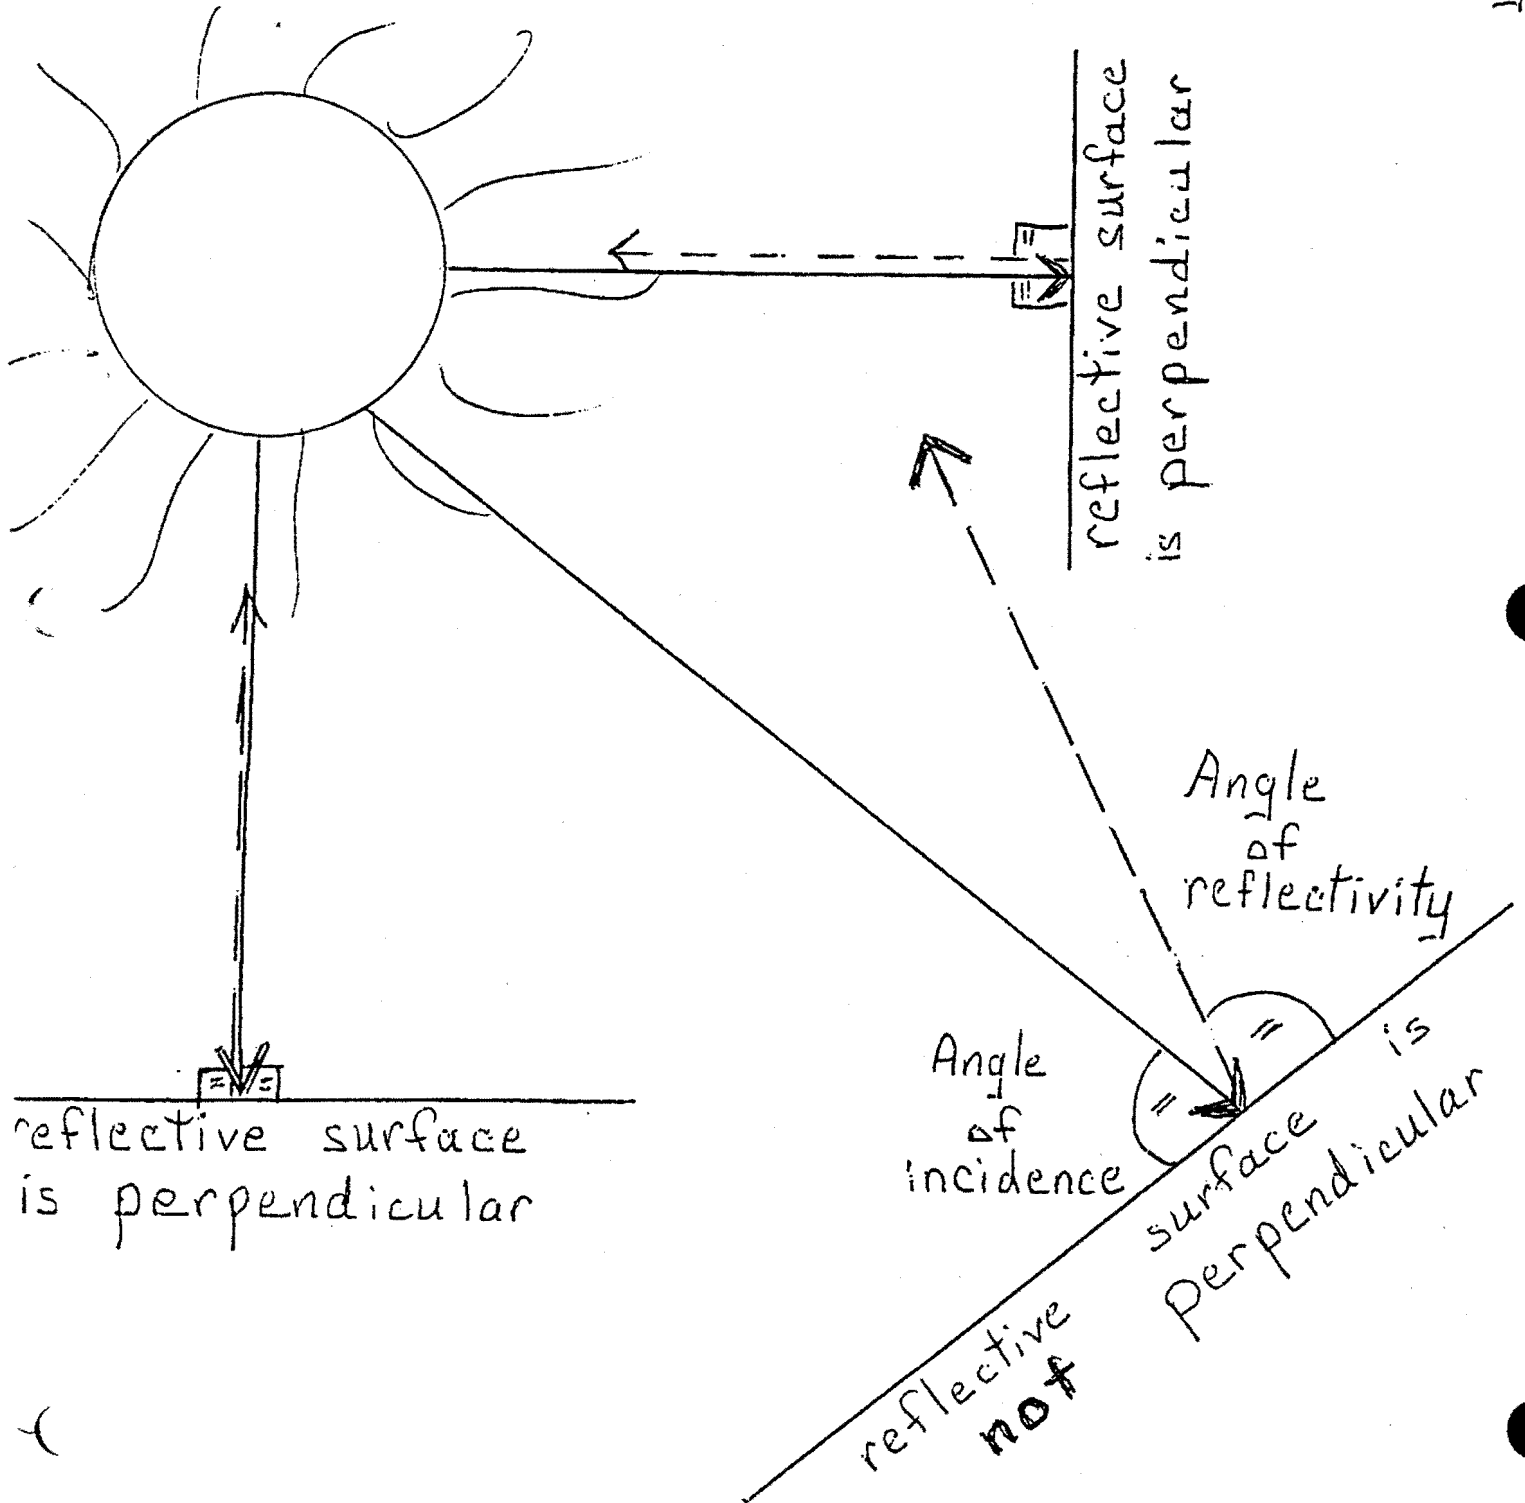 reflective surface
is perpendicular
Angle
of
reflectivity
Angle
of
incidence
reflective surface is
not perpendicular
reflective surface
is perpendicular